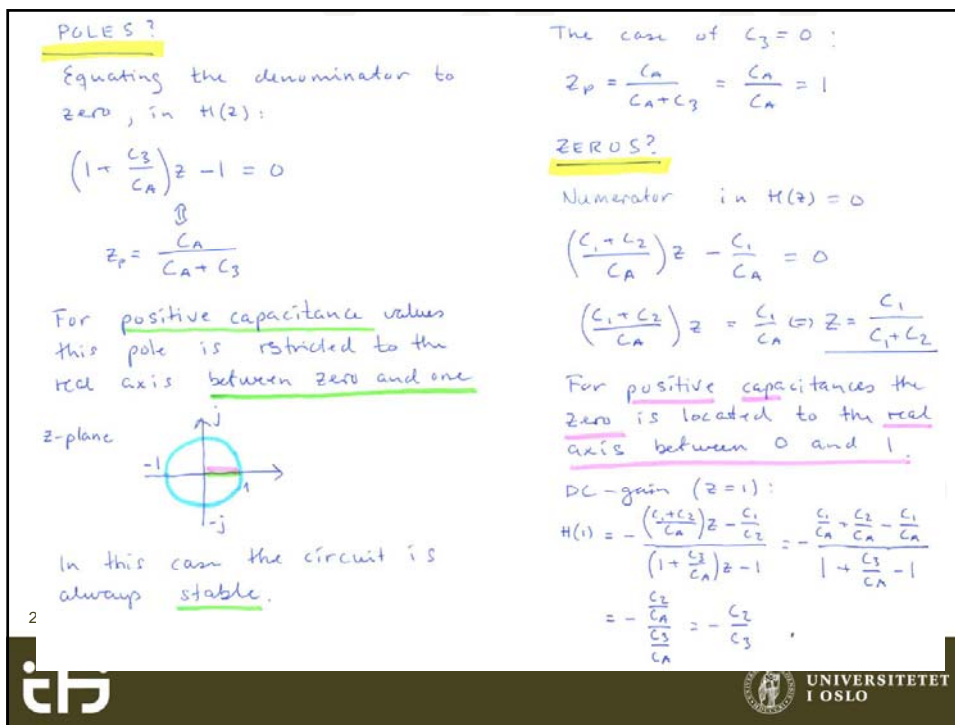 POLES?
Equating the denominator to
zero, in H(z):
(1 + C3/CA) z - 1 = 0
⇕
zp = CA/(CA + C3)
For positive capacitance values
this pole is restricted to the
real axis between zero and one
z-plane
j
-1
1
-j
In this case the circuit is
always stable.
2
The case of C3 = 0 :
Zp = CA/(CA+C3) = CA/CA = 1
ZEROS?
Numerator in H(z) = 0
((C1 + C2)/CA) z - C1/CA = 0
((C1 + C2)/CA) z = C1/CA (=) Z = C1/(C1 + C2)
For positive capacitances the
zero is located to the real
axis between 0 and 1.
DC-gain (z=1) :
H(1) = - (((C1+C2)/CA) z - C1/C2)/((1 + C3/CA) z - 1) = - (C1/CA + C2/CA - C1/CA)/(1 + C3/CA - 1)
= - (C2/CA)/(C3/CA) = - C2/C3 .
ifi
UNIVERSITETET
I OSLO